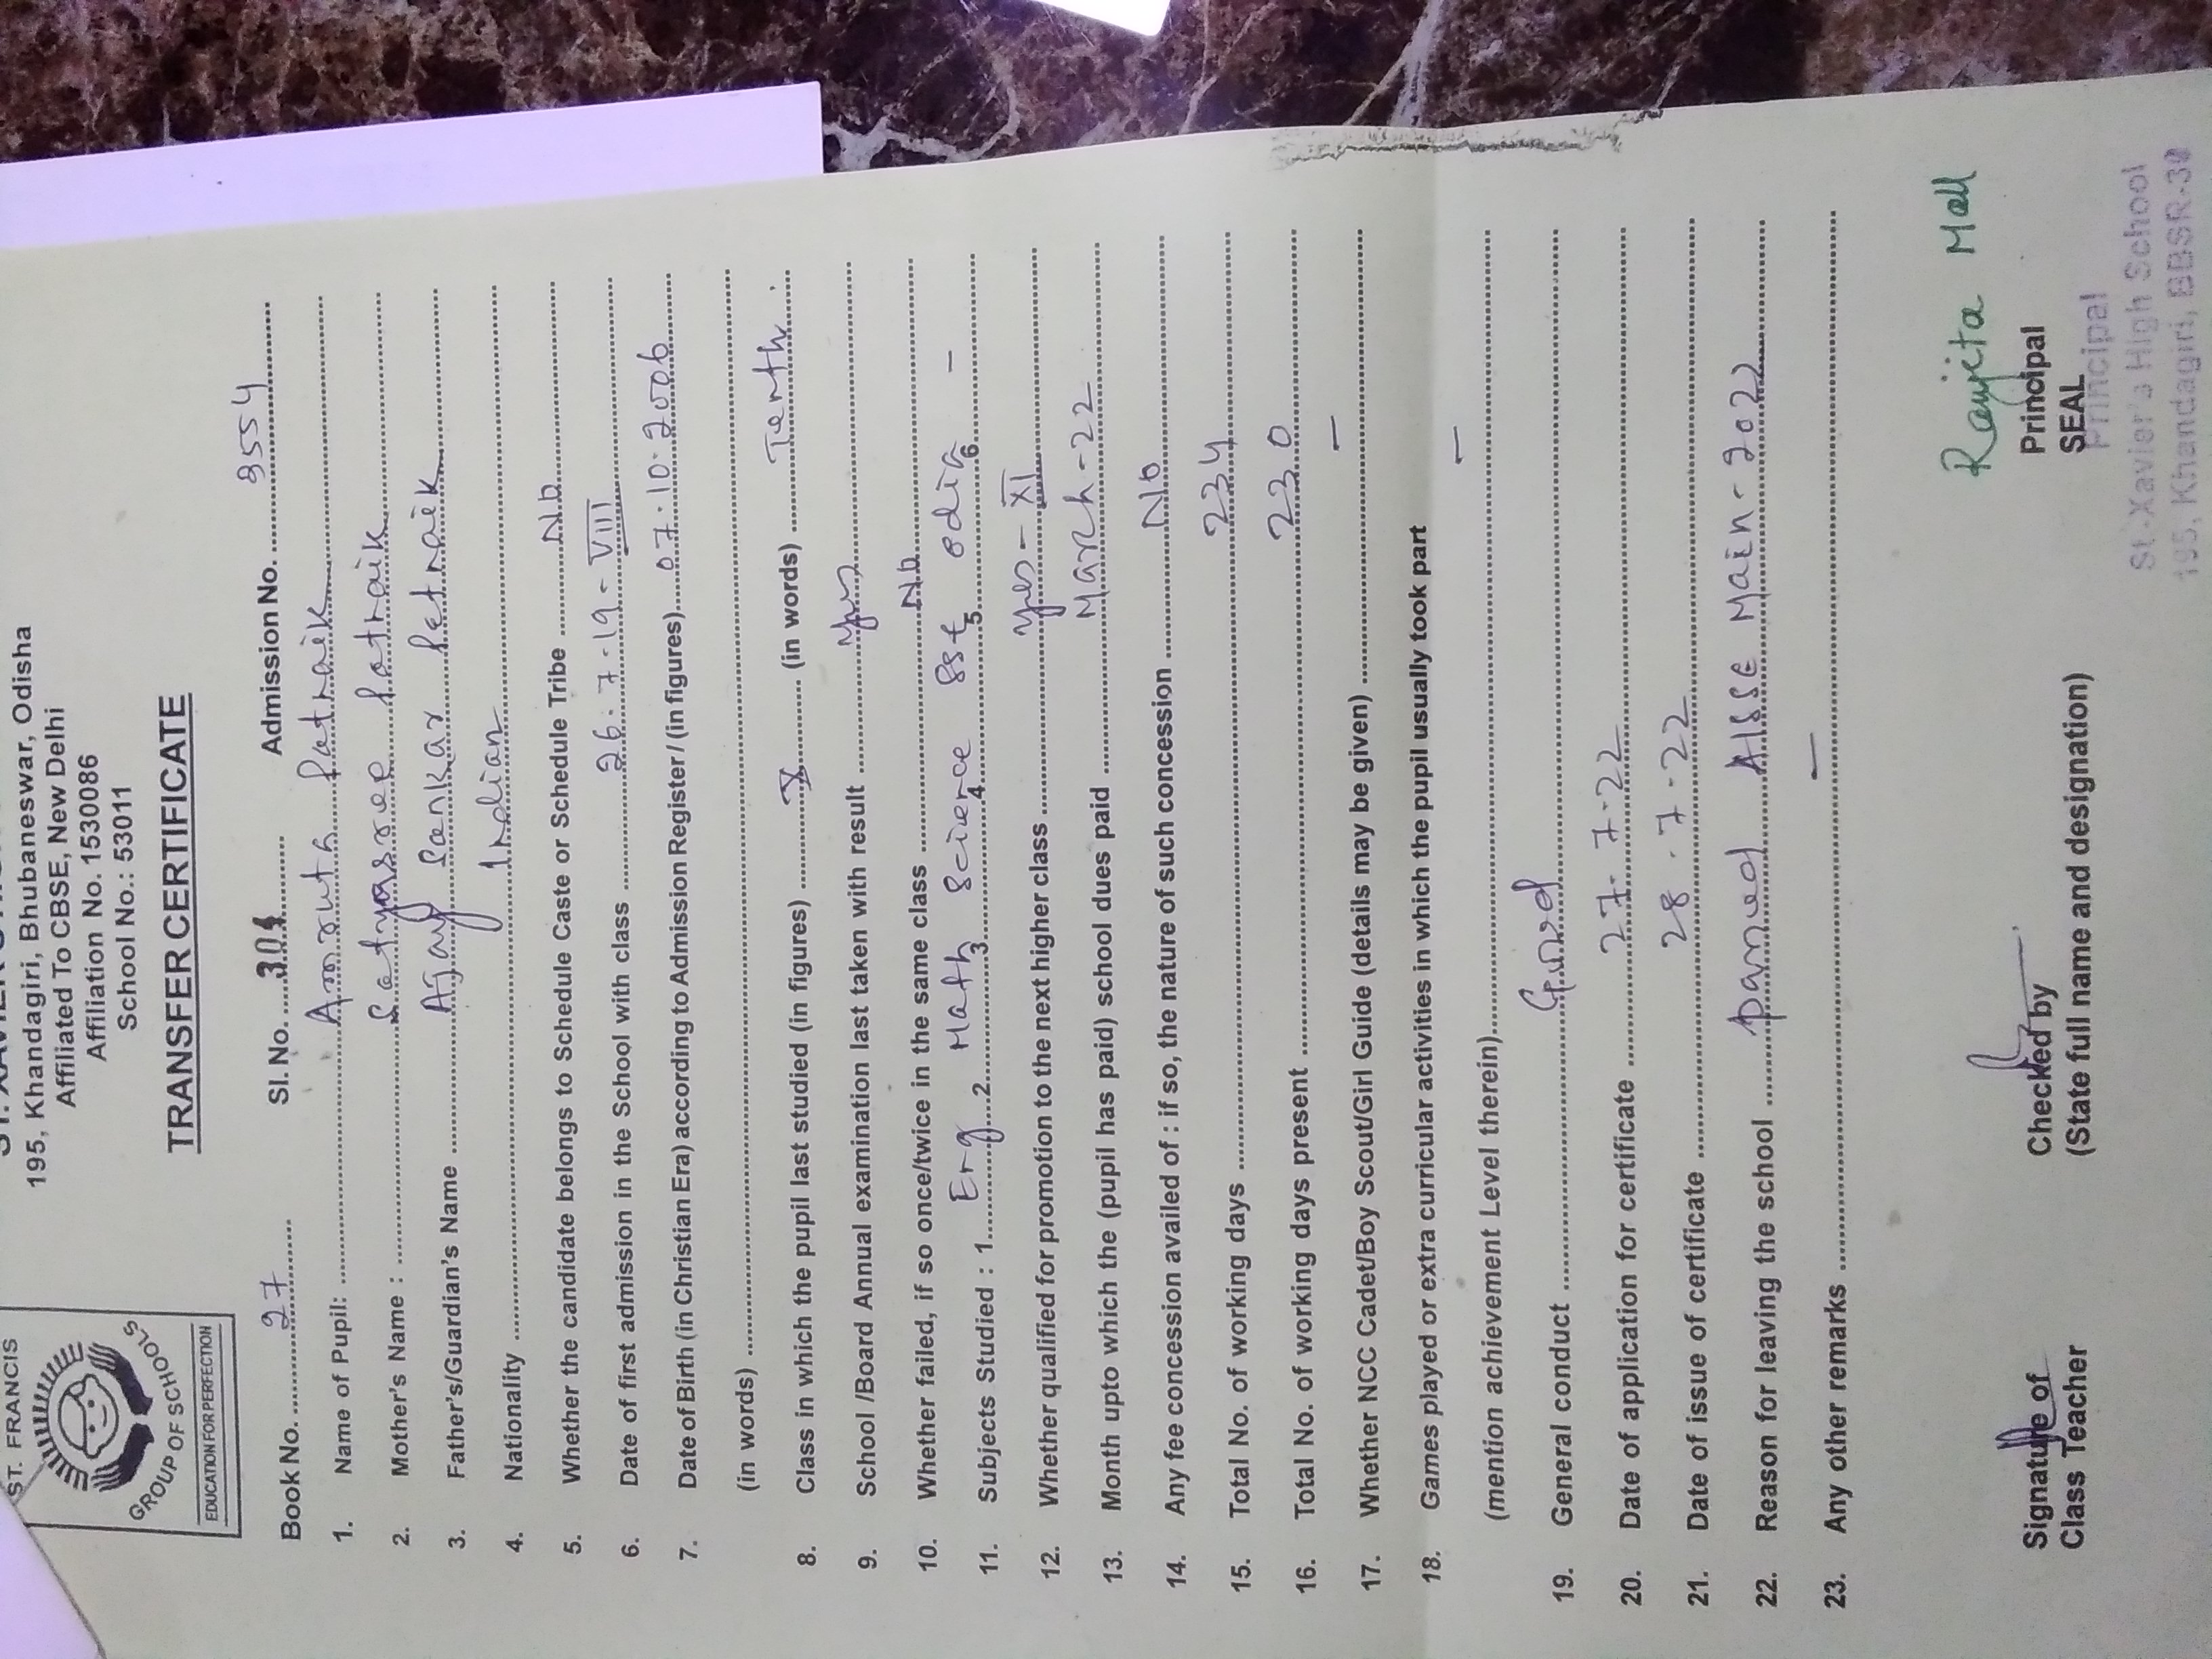 ST. FRANCIS
GROUP OF SCHOOLS
EDUCATION FOR PERFECTION
195, Khandagiri, Bhubaneswar, Odisha
Affiliated To CBSE, New Delhi
Affiliation No. 1530086
School No.: 53011
TRANSFER CERTIFICATE
Book No. 27 Sl. No. 304 Admission No. 3554
1. Name of Pupil: Amruta Patnaik
2. Mother's Name : Satyasree Patnaik
3. Father's/Guardian's Name Ajay Sankar Patnaik
4. Nationality Indian
5. Whether the candidate belongs to Schedule Caste or Schedule Tribe No
6. Date of first admission in the School with class 26.7.19 - VIII
7. Date of Birth (in Christian Era) according to Admission Register / (in figures) 07.10.2006
(in words)
8. Class in which the pupil last studied (in figures) X (in words) Tenth.
9. School /Board Annual examination last taken with result Yes
10. Whether failed, if so once/twice in the same class No
11. Subjects Studied : 1. Eng 2 Math 3 Science 4 SSt 5 Odia 6 -
12. Whether qualified for promotion to the next higher class Yes - XI
13. Month upto which the (pupil has paid) school dues paid March - 22
14. Any fee concession availed of : if so, the nature of such concession No
15. Total No. of working days 234
16. Total No. of working days present 230
17. Whether NCC Cadet/Boy Scout/Girl Guide (details may be given) -
18. Games played or extra curricular activities in which the pupil usually took part
(mention achievement Level therein) -
19. General conduct Good
20. Date of application for certificate 27.7.22
21. Date of issue of certificate 28.7.22
22. Reason for leaving the school passed AISSE Main - 2022
23. Any other remarks -
Ranjita Mall
Signature of Class Teacher
Checked by
(State full name and designation)
Principal
SEAL
Principal
St. Xavier's High School
195, Khandagiri, BBSR-30